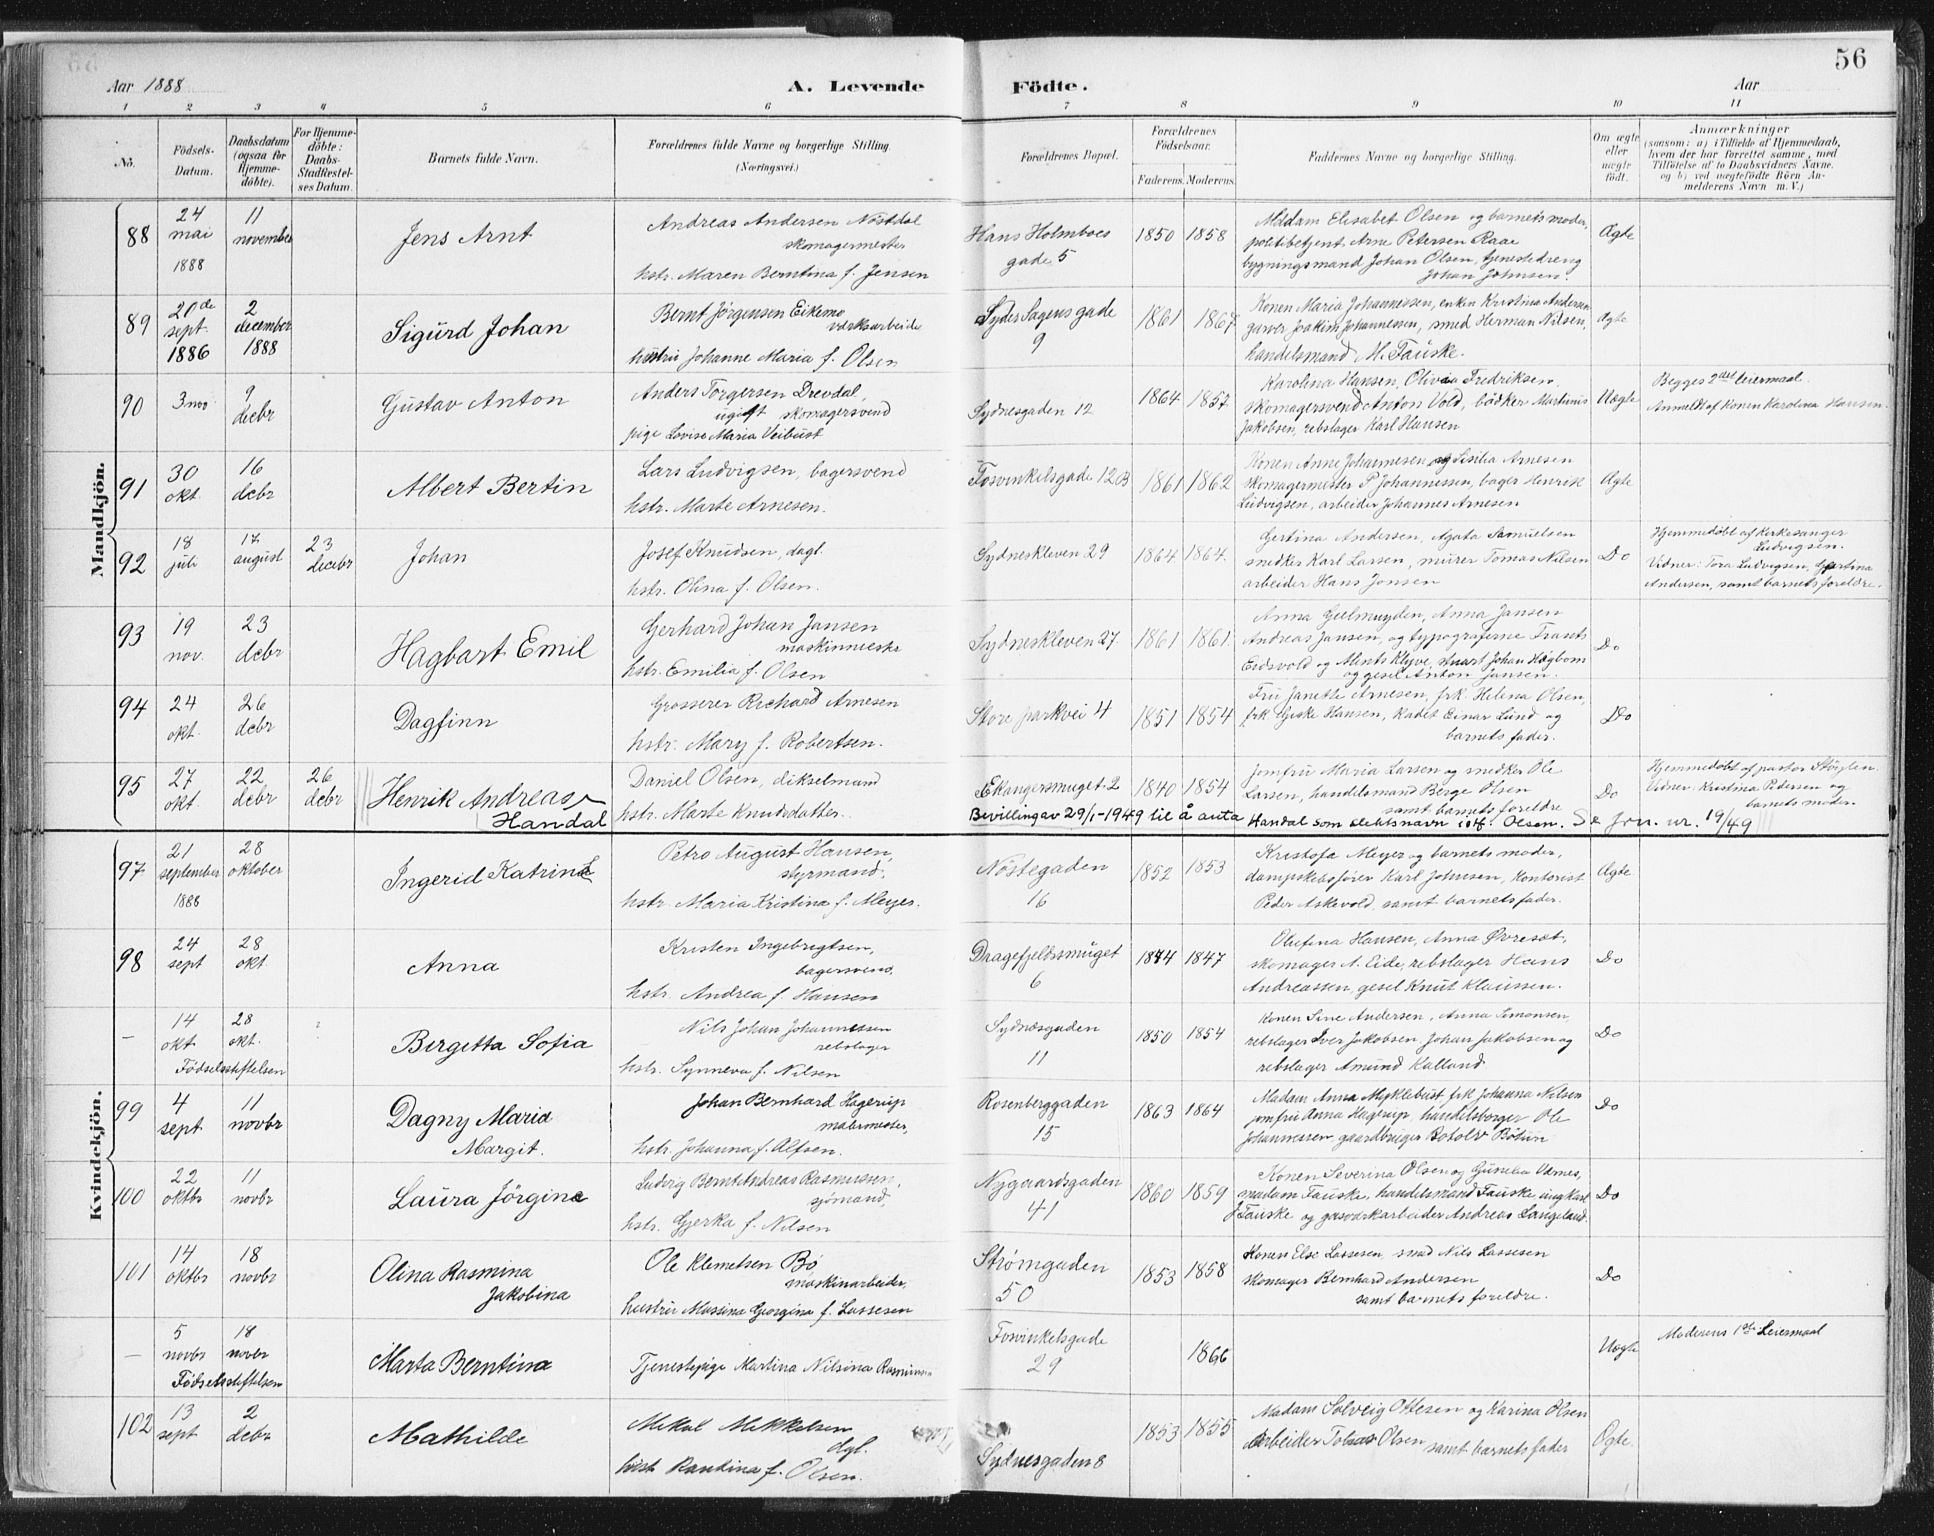 56
Aar 1888
A. Levende Födte.
Aar
1 2 3 4 5 6 7 8 9 10 11
No.
Födsels-Datum.
Daabsdatum (ogsaa for Hjemme-döbte).
For Hjemme-döbte: Daabs-Stadfæstel-ses Datum.
Barnets fulde Navn.
Forældrenes fulde Navne og borgerlige Stilling.
(Næringsvei.)
Forældrenes Bopæl.
Forældrenes Födselsaar.
Faderens. Moderens.
Faddernes Navne og borgerlige Stilling.
Om ægte eller uægte födt.
Anmærkninger
(saasom: a) i Tilfælde af Hjemmedaab, hvem der har forrettet samme, med Tilföielse af to Daabsvidners Navne. og b) ved uægtefödte Börn An-melderens Navn m. V.)
Mandkjön.
88
24 mai 1888
11 november
Jens Arnt
Andreas Andersen Nöstdal
skomagermester
hstr. Maren Berntina f. Jensen
Hans Holmboes gade 5
1850 1858
Madam Elisabet Olsen og barnets moder,
politibetjent Arne Petersen Raae
bygningsmand Johan Olsen, tjenestedreng
Johan Johnsen.
Ægte
89
20de sept. 1886
2 december 1888
Sigurd Johan
Bernt Jørgensen Eikemo
verksarbeide
hustru Johanne Maria f. Olsen
Syder Sagens gade 9
1861 1867
Konen Maria Johannessen, enken Kristina Andersen
garver Joakim Johannessen, smed Herman Nilsen,
handelsmand M. Fauske.
Ægte
90
3 nov
9 decbr
Gustav Anton
Anders Torgersen Drevdal,
ugift skomagersvend
pige Lovise Maria Veibust
Sydnesgaden 12
1864 1857
Karolina Hansen, Olivia Fredriksen,
skomagersvend Anton Vold, bödker Martinus
Jakobsen, rebslager Karl Hansen
Uægte
Begges 2det leiermaal.
Anmeldt af Konen Karolina Hansen.
91
30 okt.
16 debr
Albert Bertin
Lars Ludvigsen, bagersvend
hstr. Marte Arnesen.
Fosvinkelsgade 12B
1861 1862
Konen Anne Johannesen og Sisilia Arnesen
skomagermester P Johannessen, bager Henrik
Ludvigsen, arbeider Johannes Arnesen
Ægte
92
18 juli
17 august
23 decebr
Johan
Josef Knudsen, dagl.
hstr. Olina f. Olsen.
Sydneskleven 29
1864 1864.
Gertina Andersen, Agata Samuelsen
snedker Karl Larsen, murer Tomas Nilsen
arbeider Hans Jonsen
Do
Hjemmedöbt af kirkesanger
Ludvigsen.
Vidner: Tora Ludvigsen, Gjertina
Andersen, samt barnets foreldre.
93
19 nov.
23 debr
Hagbart Emil
Gerhard Johan Jansen
maskinmester
hstr. Emilia f. Olsen
Sydneskleven 27.
1861 1861.
Anna Gielmuyden, Anna Jansen
Andreas Jansen, og typograferne Frants
Eidsvold og Ments Klyve, stuart Johan Högbom
og gesel Anton Jansen.
Do
94
24 okt.
26 debr
Dagfinn
Grosserer Richard Arnesen
hstr. Mary f. Robertsen.
Store parkvei 4
1851 1854
Fru Janette Arnesen, frk. Helena Olsen,
frk Giske Hansen, kadet Einar Lund og
barnets fader.
Do
95
27 okt.
22 debr
26 debr
Henrik Andreas
Handal
Daniel Olsen, dikselmand
hstr. Marte Knudsdatter.
Ekangersmuget 2
1840 1854
Jomfru Maria Larsen og snedker Ole
Larsen, handelsmand Berge Olsen
samt barnets foreldre
Do
Hjemmedöbt af pastor Störlen.
Vidner: Kristina Petersen og
barnets moder.
Bevilling av 29/1-1949 til å anta Handal som slektsnavn istf. Olsen. Se Jrn. nr. 19/49
Kvindekjön.
97
21 september 1888
28 oktober
Ingerid Katrine
Petro August Hansen,
styrmand.
hstr. Maria Kristina f. Meyer.
Nöstegaden 16
1852 1853
Kristofa Meyer og barnets moder,
dampskebsförer Karl Johnsen, kontorist
Peder Askevold, samt barnets fader.
Ægte
98
24 sept
28 okt.
Anna
Kristen Ingebrigtsen,
bagersvend.
hstr. Andrea f. Hansen
Dragefjeldssmuget 6
1844 1847
Olufina Hansen, Anna Øvreset,
skomager A. Eide, rebslager Hans
Andreassen, gesel Knut Klaussen.
Do
—
14 okt
28 okt.
Födselsstiftelsen
Bergetta Sofia
Nils Johan Johannessen
rebslager
hstr. Synneva f. Nilsen
Sydnæsgaden 11
1850 1854
Konen Sine Andersen, Anna Simonsen
rebslager Iver Jakobsen, Johan Jakobsen og
rebslager Amund Kalland.
Do
99
4 sept
11 novbr
Dagny Maria
Margit.
Johan Bernhard Hagerup
malermester,
hstr. Johanna f. Alfsen.
Rosenberggaden 15
1863 1864
Madam Anna Myklebust frk Johanna Nilsen
jomfru Anna Hagerup, handelsborger Ole
Johannessen gaardbruger Botolv Bötun
Do
100
22 oktbr
11 novbr
Laura Jörgine
Ludvig Bernt Andreas Rasmussen,
sjömand,
hstr. Gjerka f. Nilsen
Nygaardsgaden 41
1860 1859
Konen Severina Olsen og Gunelia Vernes,
madam Fauske, handelsmand Fauske, ung karl
J Fauske og gasverkarbeider Andreas Langeland.
Do
101
14 oktbr
18 novbr
Olina Rasmina
Jakobina
Ole Klemetsen Bö
maskinarbeider,
hustru Massina Georgina f. Lassesen
Strömgaden 50
1853 1858
Konen Else Lassesen, smed Nils Lassesen
skomager Bernhard Andersen
samt barnets foreldre.
Do
—
5 novbr
18 novbr
Födselsstiftelsen
Marta Berntina
Tjenestepige Martina Nilsina Rasmussen
Fosvinkelsgade 29
1866
Uægte
Moderens 1ste Leiermaal
102
13 sept
2 debr
Mathilde
Mikal Mikkelsen
dgl.
hust Rantina f. Olsen.
Sydnesgaden 8
1853 1855
Madam Solveig Ottesen og Karina Olsen
Arbeider Tobias Olsen samt barnets fader
Ægte.